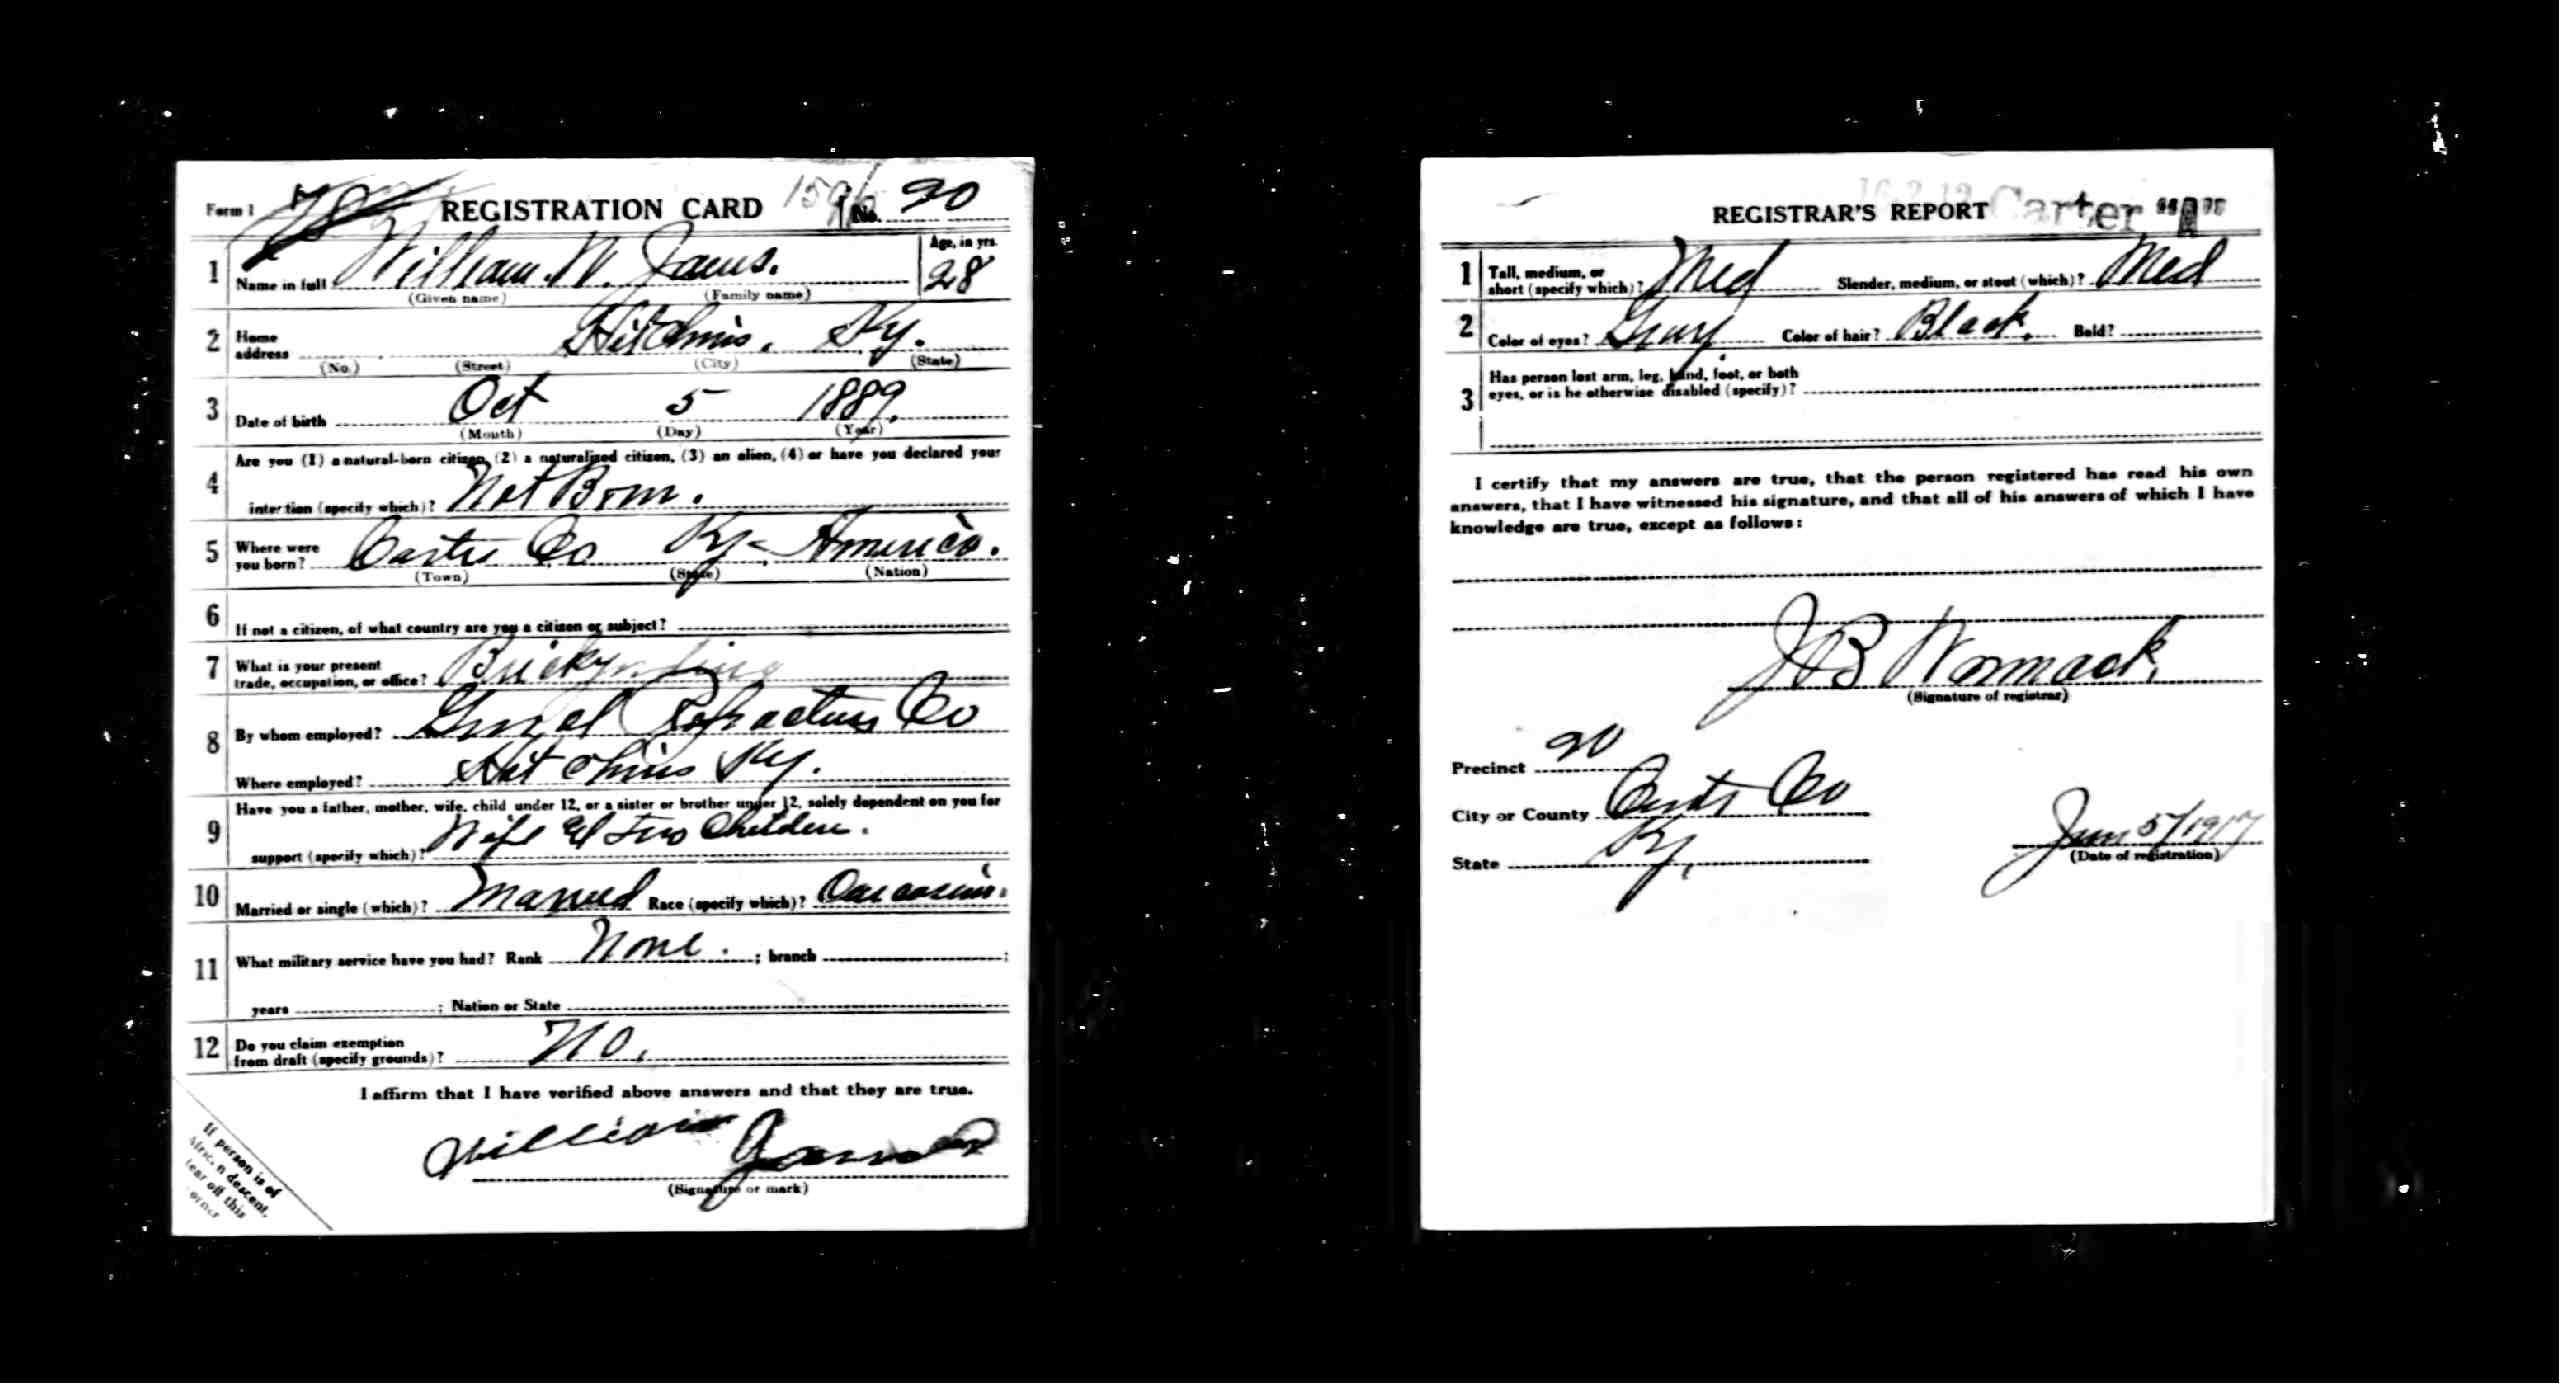 Form 1 REGISTRATION CARD No. 20
1 Name in full William N. James. Age, in yrs. 28
(Given name) (Family name)
2 Home address Hitchins. Ky.
(No.) (Street) (City) (State)
3 Date of birth Oct 5 1889
(Month) (Day) (Year)
4 Are you (1) a natural-born citizen, (2) a naturalized citizen, (3) an alien, (4) or have you declared your
intention (specify which)? Nat Born.
5 Where were you born? Carter Co Ky - America.
(Town) (State) (Nation)
6 If not a citizen, of what country are you a citizen or subject?
7 What is your present
trade, occupation, or office?
8 By whom employed? Refractories Co
Where employed? Hitchins Ky.
9 Have you a father, mother, wife, child under 12, or a sister or brother under 12, solely dependent on you for
support (specify which)? Wife & Two Children.
10 Married or single (which)? Married Race (specify which)? Caucasian.
11 What military service have you had? Rank None. ; branch ;
years ; Nation or State
12 Do you claim exemption
from draft (specify grounds)? No.
I affirm that I have verified above answers and that they are true.
William James
(Signature or mark)
If person is of
African descent,
tear off this
corner
REGISTRAR'S REPORT Carter "A"
1 Tall, medium, or
short (specify which)? Med Slender, medium, or stout (which)? Med
2 Color of eyes? Gray Color of hair? Black Bald?
3 Has person lost arm, leg, hand, foot, or both
eyes, or is he otherwise disabled (specify)?
I certify that my answers are true, that the person registered has read his own
answers, that I have witnessed his signature, and that all of his answers of which I have
knowledge are true, except as follows:
J B Wormack
(Signature of registrar)
Precinct 20
City or County Carter Co
State Ky.
June 5/1917
(Date of registration)